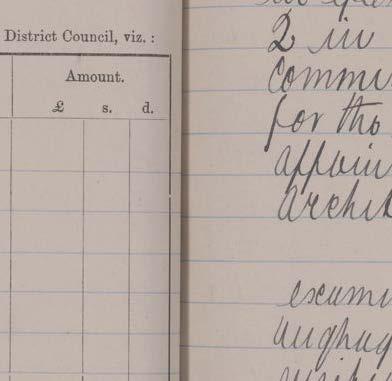 District Council, viz. :
Amount.
£ s. d.
2 in
commi
for the
appoin
archit
exami